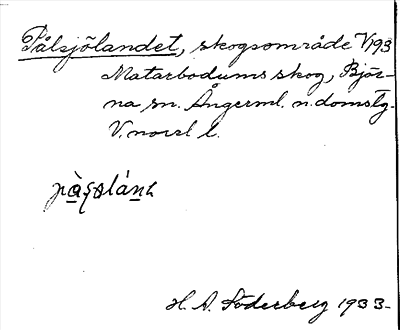 Pålsjölandet, skogsområde V193
Matarbodums skog, Björ-
na sn. Ångerml. n. domsg.
V. norrl l.
H. A. Söderberg 1933.